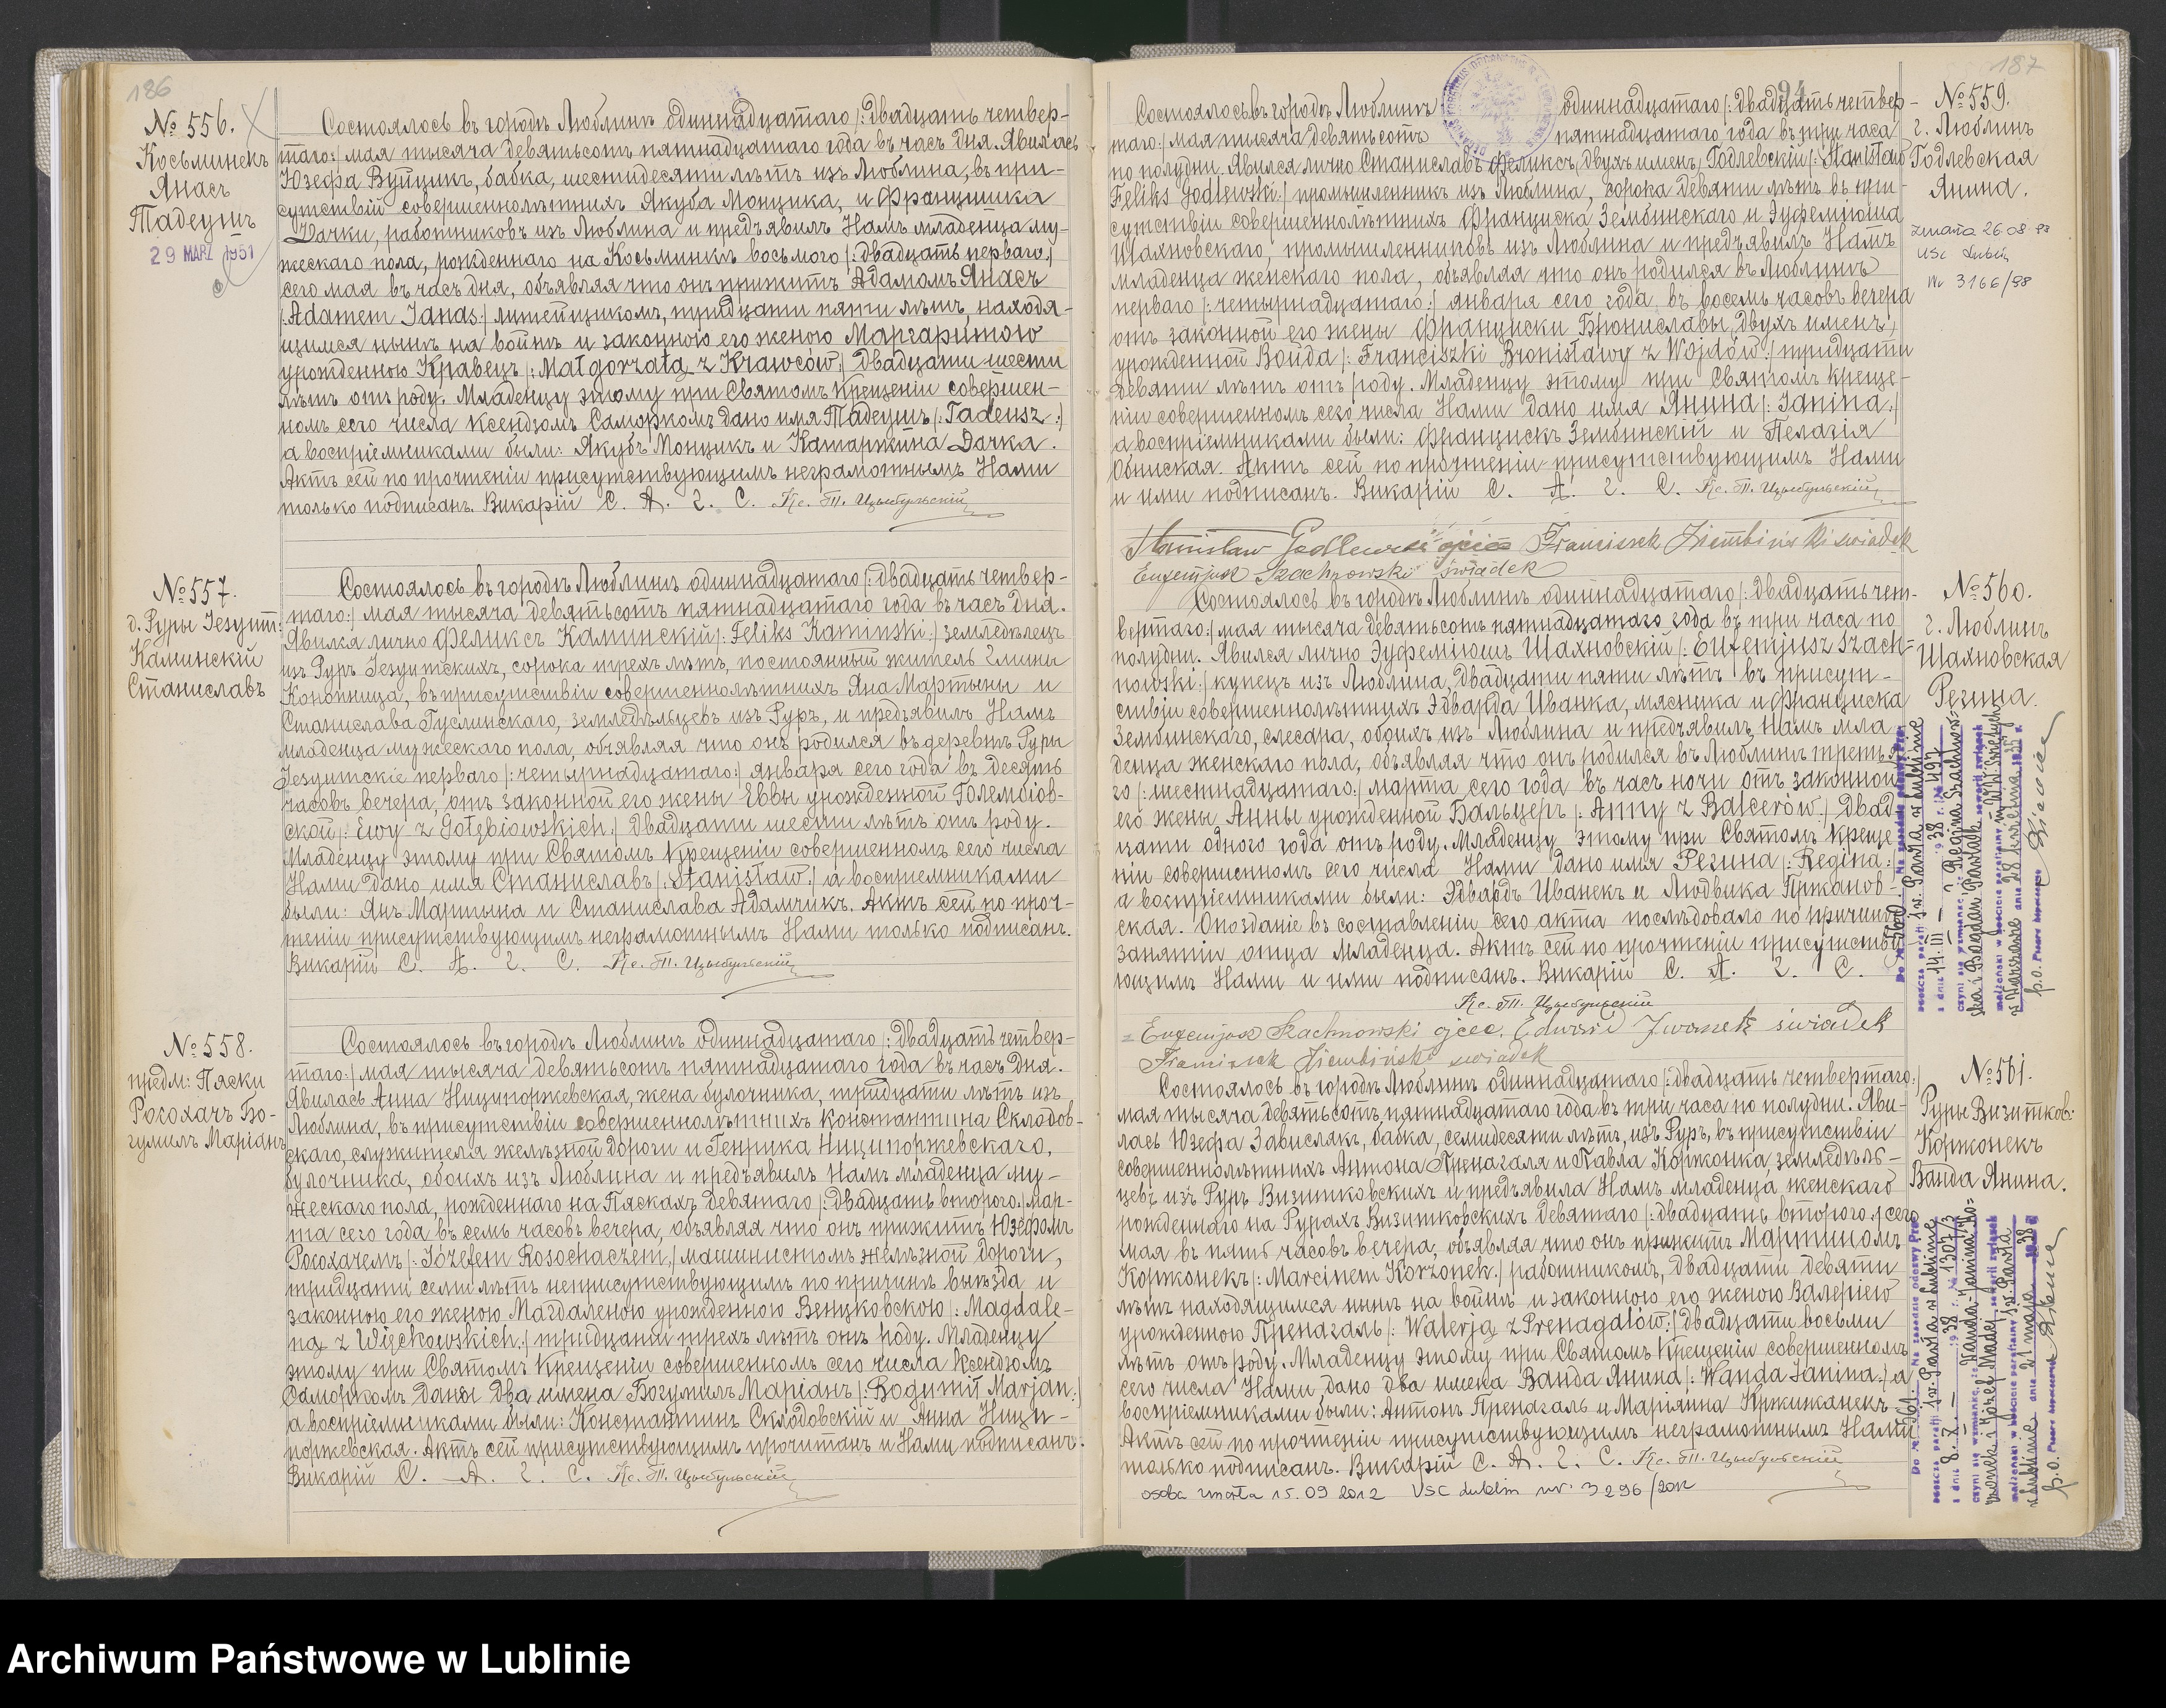 186
№ 556.
Косьминекъ
Янасъ
Тадеушъ
29 MARZ 1951
Состоялось въ городѣ Люблинѣ одиннадцатаго /: двадцать четвер-
таго :/ мая тысяча девятьсотъ пятнадцатаго года въ часъ дня. Явилась
Юзефа Вуйцикъ, бабка, шестидесяти лѣтъ изъ Люблина, въ при-
сутствіи совершеннолѣтнихъ Якуба Монцика, и Францишка
Дачки, работниковъ изъ Люблина и предъявилъ Намъ младенца му-
жескаго пола, рожденнаго на Косьминкѣ восьмого /: двадцать перваго :/
сего мая въ часъ дня, объявляя что онъ прижитъ Адамомъ Янасъ
/: Adamem Janas :/ литейщикомъ, тридцати пяти лѣтъ, находя-
щимся нынѣ на войнѣ и законною его женою Маргаритою
урожденною Кравецъ /: Małgorzatą z Krawców :/ двадцати шести
лѣтъ отъ роду. Младенцу этому при Святомъ Крещеніи совершен-
номъ сего числа Ксендзомъ Саморкомъ дано имя Тадеушъ /: Tadeusz :/
а воспріемниками были: Якубъ Монцикъ и Катаржина Дачка.
Актъ сей по прочтеніи присутствующимъ неграмотнымъ Нами
только подписанъ. Викарій С. А. Г. С. Кс. Т. Цыбульскій
№ 557.
д. Руры Іезуит:
Каминскій
Станиславъ
Состоялось въ городѣ Люблинѣ одиннадцатаго /: двадцать четвер-
таго :/ мая тысяча девятьсотъ пятнадцатаго года въ часъ дня.
Явилка лично Феликсъ Каминскій /: Feliks Kaminski :/ земледѣлецъ
изъ Руръ Іезуитскихъ, сорока трехъ лѣтъ, постоянный житель Гмины
Конопница, въ присутствіи совершеннолѣтнихъ Яна Мартыны и
Станислава Гуслинскаго, земледѣльцевъ изъ Руръ, и предъявилъ Намъ
младенца мужескаго пола, объявляя что онъ родился въ деревнѣ Руры
Іезуитскіе перваго /: четырнадцатаго :/ января сего года въ десять
часовъ вечера, отъ законной его жены Еввы урожденной Голембіов-
ской /: Ewy z Gołębiowskich :/ двадцати шести лѣтъ отъ роду.
Младенцу этому при Святомъ Крещеніи совершенномъ сего числа
Нами дано имя Станиславъ /: Stanisław :/ а воспріемниками
были: Янъ Мартына и Станислава Адамчикъ. Актъ сей по проч-
теніи присутствующимъ неграмотнымъ Нами только подписанъ.
Викарій С. А. Г. С. Кс. Т. Цыбульскій
№ 558.
предм: Пяски
Росохачъ Бо-
гумилъ Маріанъ
Состоялось въ городѣ Люблинѣ одиннадцатаго /: двадцать четвер-
таго :/ мая тысяча девятьсотъ пятнадцатаго года въ часъ дня.
Явилась Анна Ницпоржевская, жена булочника, тридцати лѣтъ изъ
Люблина, въ присутствіи совершеннолѣтнихъ Константина Склодов-
скаго, служителя желѣзной дороги и Генрика Ницпоржевскаго,
булочника, обоихъ изъ Люблина и предъявилъ Намъ младенца му-
жескаго пола, рожденнаго на Пяскахъ девятаго /: двадцать второго :/ мар-
та сего года въ семь часовъ вечера, объявляя что онъ прижитъ Юзефомъ
Росохачемъ /: Józefem Rosochaczem :/ машинистомъ желѣзной дороги,
тридцати семи лѣтъ неприсутствующимъ по причинѣ выѣзда и
законною его женою Магдаленою урожденною Венцковскою /: Magdale-
ną z Więckowskich :/ тридцати трехъ лѣтъ отъ роду. Младенцу
этому при Святомъ Крещеніи совершенномъ сего числа Ксендзомъ
Саморкомъ даны два имена Богумилъ Маріанъ /: Bogumił Marjan :/
а воспріемниками были: Константинъ Склодовскій и Анна Ницп-
поржевская. Актъ сей присутствующимъ прочитанъ и Нами подписанъ.
Викарій С. А. Г. С. Кс. Т. Цыбульскій
187
94
№ 559.
г. Люблинъ
Годлевская
Янина.
zmarła 26 08 98
USC Lublin
Nr 3166/98
Состоялось въ городѣ Люблинѣ одиннадцатаго /: двадцать четвер-
таго :/ мая тысяча девятьсотъ пятнадцатаго года въ три часа
по полудни. Явился лично Станиславъ Феликсъ, двухъ именъ, Годлевскій /: Stanisław
Feliks Godlewski :/ промышленникъ изъ Люблина, сорока девяти лѣтъ въ при-
сутствіи совершеннолѣтнихъ Франциска Зембинскаго и Эуфеміюша
Шахновскаго, промышленниковъ изъ Люблина и предъявилъ Намъ
младенца женскаго пола, объявляя что онъ родился въ Люблинѣ
перваго /: четырнадцатаго :/ января сего года, въ восемь часовъ вечера
отъ законной его жены Франциски Брониславы, двухъ именъ,
урожденной Войда /: Franciszki Bronisławy z Wojdów :/ тридцати
девяти лѣтъ отъ роду. Младенцу этому при Святомъ Креще-
ніи совершенномъ сего числа Нами дано имя Янина /: Janina :/
а воспріемниками были: Францискъ Зембинскій и Пелагія
Обниская. Актъ сей по прочтеніи присутствующимъ Нами
и ими подписанъ. Викарій С. А. Г. С. Кс. Т. Цыбульскій
Stanisław Godlewski ojciec Franciszek Ziembiński świadek
Eufemjusz Szachnowski świadek
№ 560.
г. Люблинъ
Шахновская
Регина.
Состоялось въ городѣ Люблинѣ одиннадцатаго /: двадцать чет-
вертаго :/ мая тысяча девятьсотъ пятнадцатаго года въ три часа по
полудни. Явился лично Эуфеміюшъ Шахновскій /: Eufemjusz Szach-
nowski :/ купецъ изъ Люблина, двадцати пяти лѣтъ въ присут-
ствіи совершеннолѣтнихъ Эдварда Иванка, мясника и Франциска
Зембинскаго, слесаря, обоихъ изъ Люблина и предъявилъ Намъ мла-
денца женскаго пола, объявляя что онъ родился въ Люблинѣ третья-
го /: шестнадцатаго :/ марта сего года въ часъ ночи отъ законной
его жены Анны урожденной Бальцеръ /: Anny z Balcerów :/ двад-
цати одного года отъ роду. Младенцу этому при Святомъ Креще-
ніи совершенномъ сего числа Нами дано имя Регина /: Regina :/
а воспріемниками были: Эдвардъ Иванекъ и Людвика Пржанов-
ская. Опозданіе въ составленіи сего акта послѣдовало по причинѣ
занятій отца младенца. Актъ сей по прочтеніи присутству-
ющимъ Нами и ими подписанъ. Викарій С. А. Г. С.
Кс. Т. Цыбульскій
Eufemjusz Szachnowski ojciec, Edward Iwanek świadek
Franciszek Ziembiński świadek
Do № 560. Na zasadzie odezwy Pro-
boszcza parafji św. Pawła w Lublinie
z dnia 14. III 1938 r. № 497
czyni się wzmiankę, że Regina Szachnow-
ska i Bogdan Pawlak zawarli związek
małżeński w kościele parafjalny
w Warszawie dnia 28 1935 r.
p.o.
№ 561.
Руры Визитков:
Коржонекъ
Ванда Янина.
Состоялось въ городѣ Люблинѣ одиннадцатаго /: двадцать четвертаго :/
мая тысяча девятьсотъ пятнадцатаго года въ три часа по полудни. Яви-
лась Юзефа Зависляк, бабка, семидесяти лѣтъ, изъ Руръ, въ присутствіи
совершеннолѣтнихъ Антона Пренагаля и Павла Коржонка, земледѣль-
цевъ изъ Руръ Визитковскихъ и предъявила Намъ младенца женскаго
рожденнаго на Рурахъ Визитковскихъ девятаго /: двадцать второго :/ сего
мая въ пять часовъ вечера, объявляя что онъ прижитъ Мартиномъ
Коржонекъ /: Marcinem Korzonek :/ работникомъ, двадцати девяти
лѣтъ находящимся нынѣ на войнѣ и законною его женою Валеріею
урожденною Пренагаль /: Walerją z Prenagalów :/ двадцати восьми
лѣтъ отъ роду. Младенцу этому при Святомъ Крещеніи совершенномъ
сего числа Нами дано два имена Ванда Янина /: Wanda Janina :/ а
воспріемниками были: Антонъ Пренагаль и Маріянна Кржижанекъ
Актъ сей по прочтеніи присутствующимъ неграмотнымъ Нами
только подписанъ. Викарій С. А. Г. С. Кс. Т. Цыбульскій
osoba zmarła 15.09 2012 USC Lublin nr. 3296/2012
Do № 561. Na zasadzie odezwy Pro-
boszcza parafji św. Pawła w Lublinie
z dnia 8. X. 1938 r. № 1307/3
czyni się wzmiankę, że Wanda-Janina Ko-
rzonek i Józef Madej zawarli związek
małżeński w kościele parafjalny św. Pawła
w Lublinie dnia 21 maja 1938
p.o.
Archiwum Państwowe w Lublinie